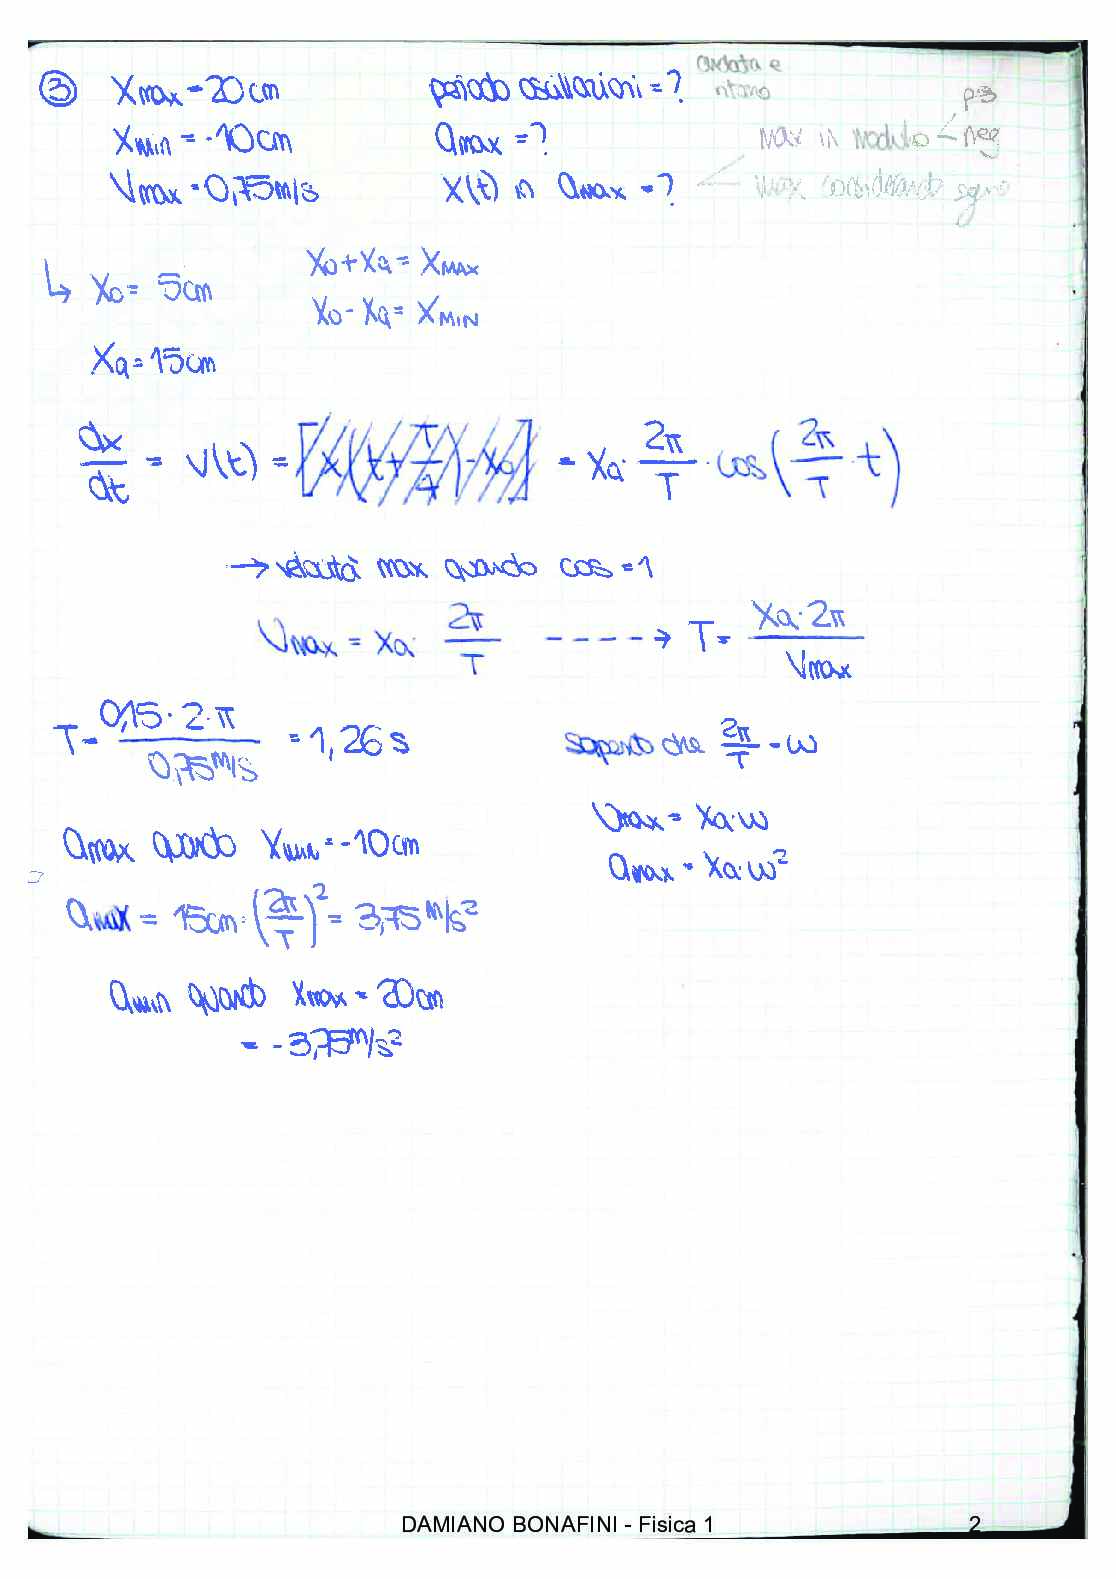 ③ Xmax = 20cm periodo oscillazioni = ? andata e ritorno
Xmin = -10cm amax = ? max in modulo < pos neg
Vmax = 0,75m/s X(t) in amax = ? max considerando segno
↳ X0 = 5cm X0 + Xa = XMAX
X0 - Xa = XMIN
Xa = 15cm
dx/dt = V(t) = = Xa · 2π/T · cos(2π/T · t)
→ velocità max quando cos = 1
Vmax = Xa · 2π/T ----→ T = Xa · 2π / Vmax
T = 0,15 · 2 · π / 0,75 m/s = 1,26 s sapendo che 2π/T = ω
Vmax = Xa · ω
amax quando Xmin = -10cm
amax = Xa · ω²
amax = 15cm · (2π/T)² = 3,75 m/s²
amin quando Xmax = 20cm
= -3,75 m/s²
DAMIANO BONAFINI - Fisica 1 2